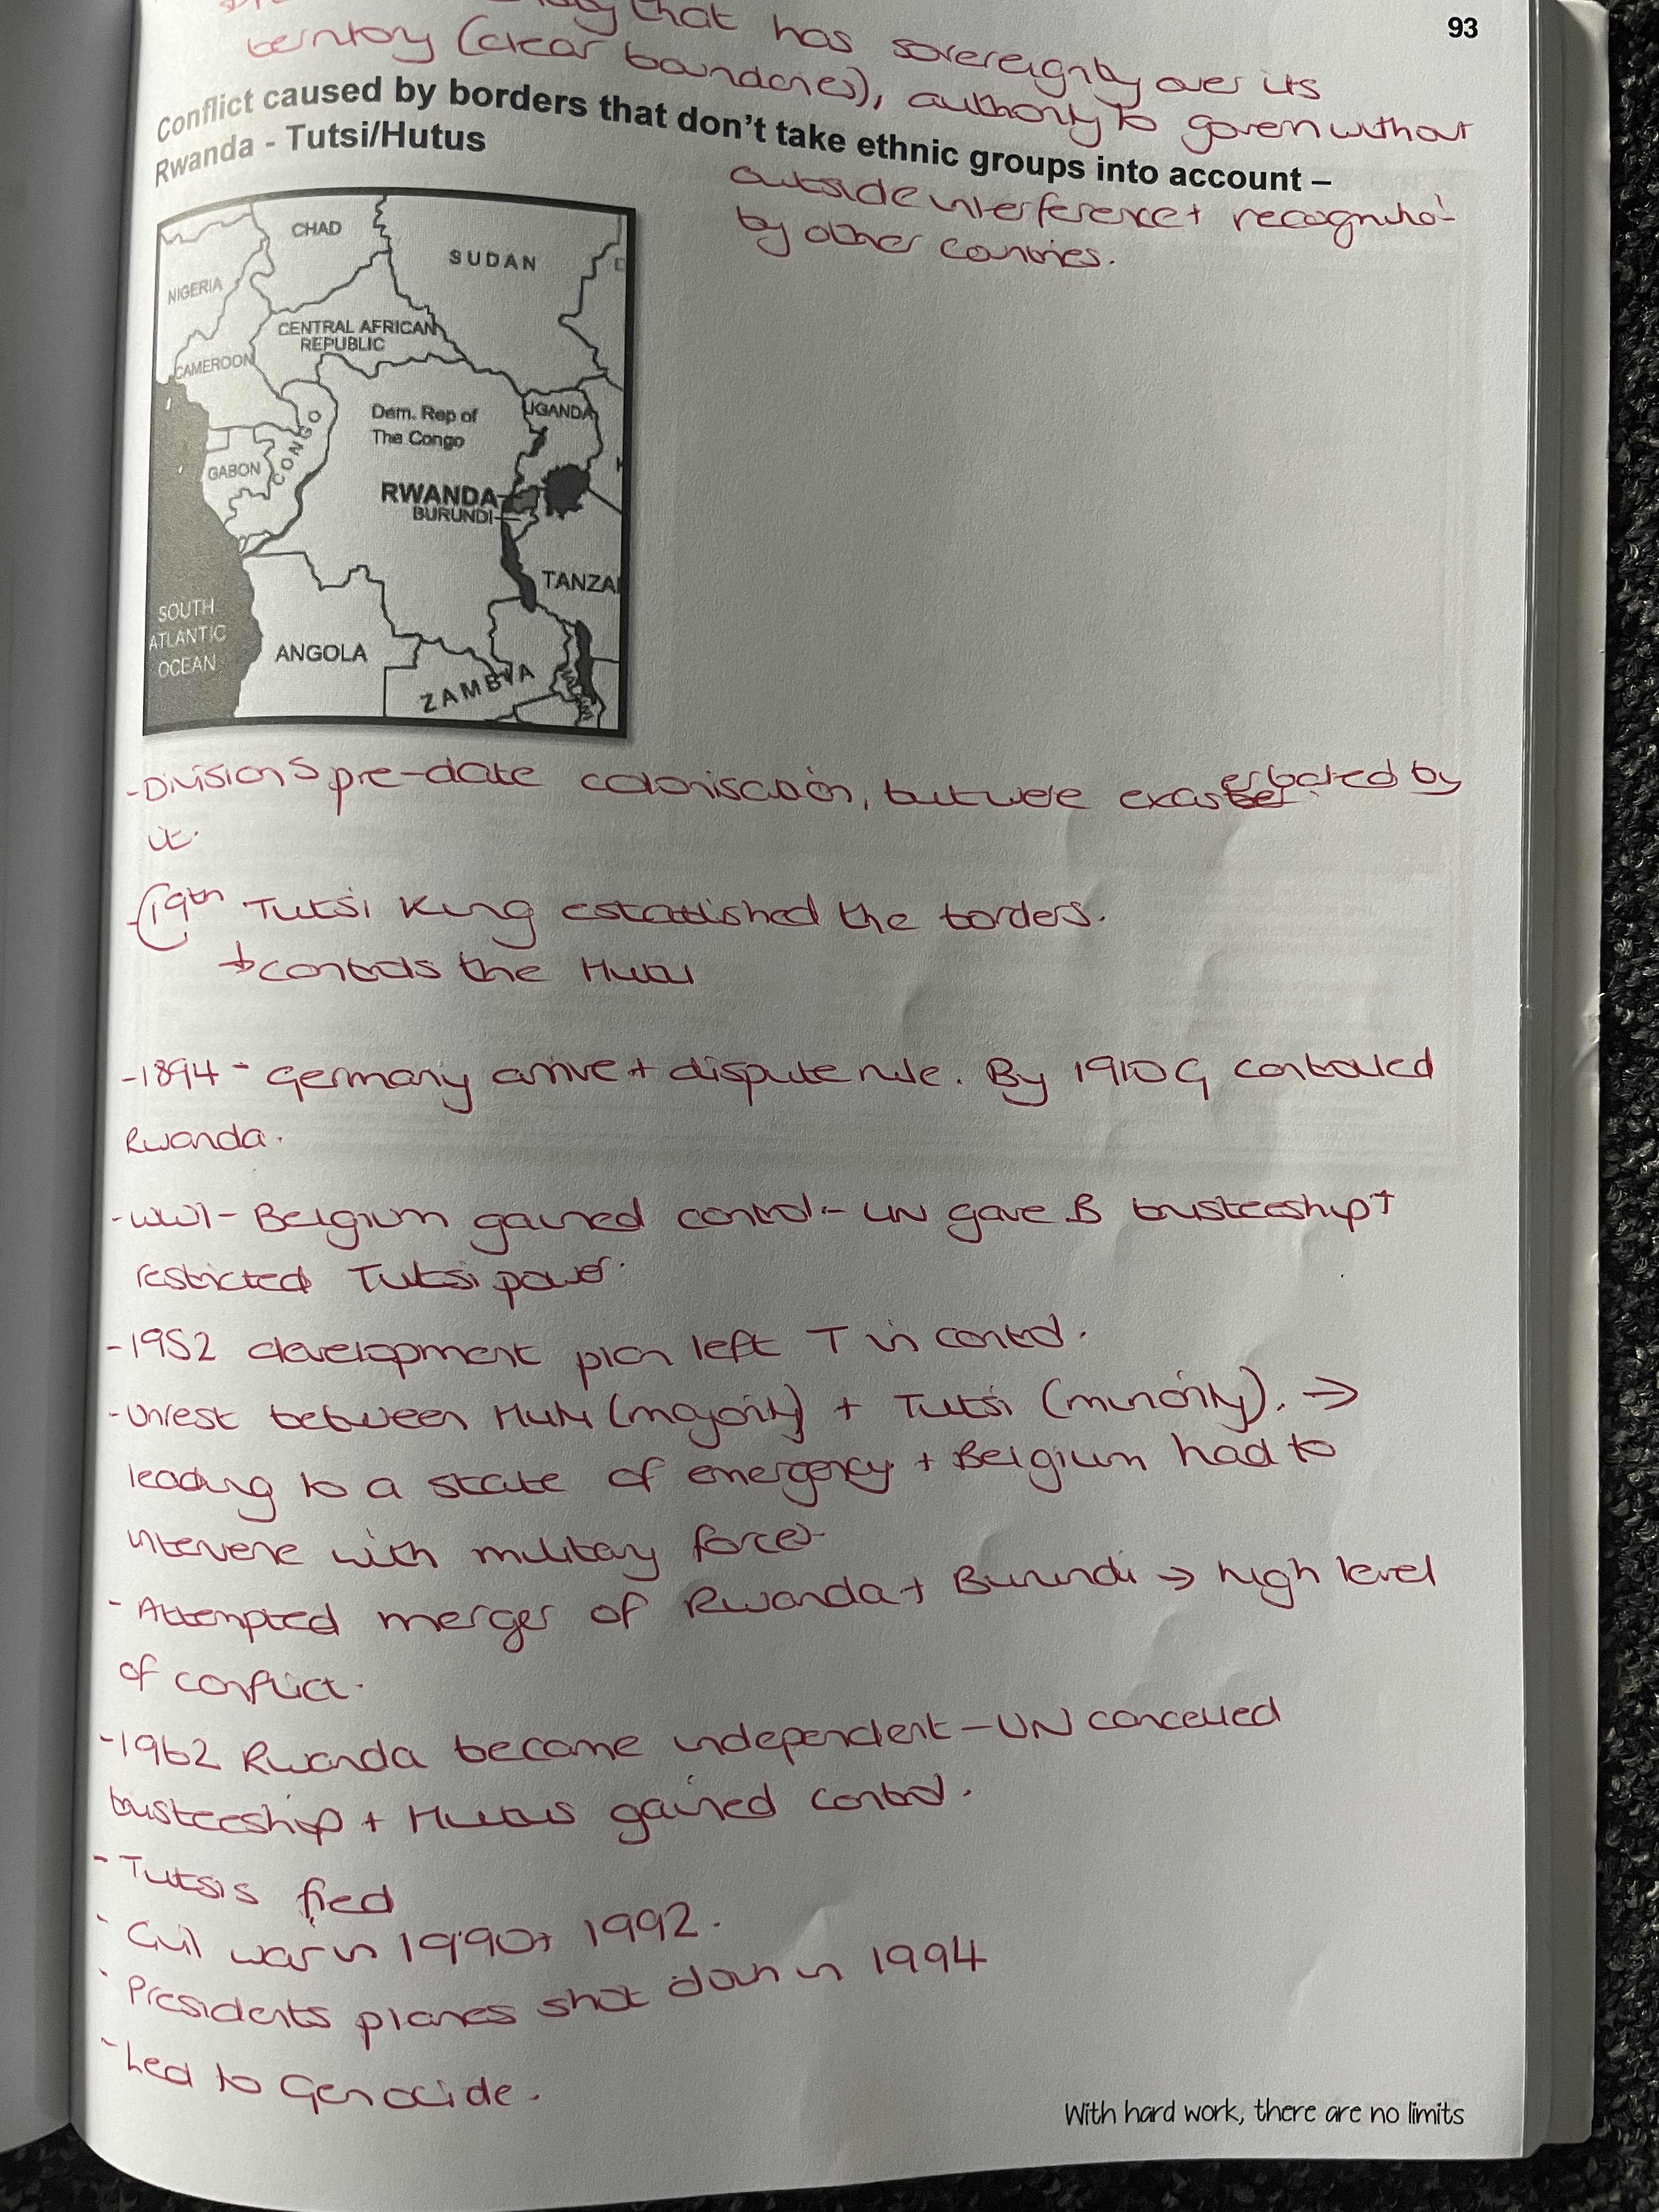 that has sovereignty over its
93
territory (clear boundaries), authority to govern without
Conflict caused by borders that don't take ethnic groups into account –
Rwanda - Tutsi/Hutus
outside interference + recognitio
by other countries.
CHAD
SUDAN
NIGERIA
CENTRAL AFRICAN
REPUBLIC
CAMEROON
UGANDA
Dem. Rep of
The Congo
CONGO
GABON
RWANDA
BURUNDI
TANZA
SOUTH
ATLANTIC
OCEAN
ANGOLA
ZAMBIA
- Divisions pre-date colonisation, but were exaserbated by
it.
- 19th Tutsi King established the borders.
↳ controls the Hutu
- 1894 - Germany arrive + dispute rule. By 1910 G controlled
Rwanda.
- WW1 - Belgium gained control - UN gave B trusteeship +
restricted Tutsi power.
- 1952 development plan left T in control.
- Unrest between Hutu (majority) + Tutsi (minority). →
leading to a state of emergency + Belgium had to
intervene with military force
- Attempted merger of Rwanda + Burundi → high level
of conflict.
- 1962 Rwanda became independent - UN cancelled
trusteeship + Hutus gained control.
- Tutsis fled
- Civil war in 1990 + 1992.
- Presidents planes shot down in 1994
- Led to Genocide.
With hard work, there are no limits